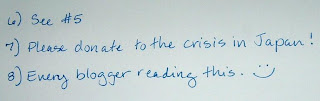 6) See #5
7) Please donate to the crisis in Japan!
8) Every blogger reading this. :)